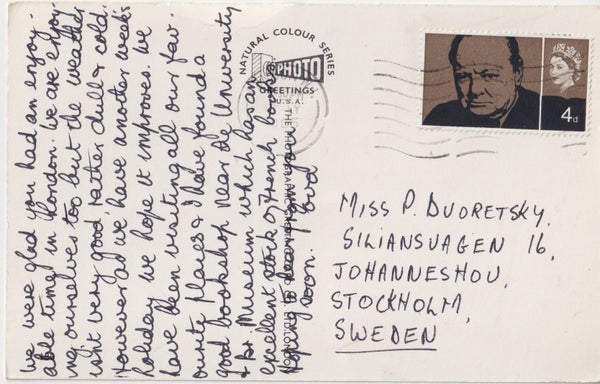 We were glad you had an enjoy-
able time in London. We are enjoy-
ing ourselves too but the weather
isn't very good, rather dull & cold.
However as we have another weeks
holiday we hope it improves. We
have been visiting all our fav-
ourite places & I have found a
good bookshop near the University
& Br. Museum which has an
excellent stock of French books.
Hoping to hear from you
soon.
NATURAL COLOUR SERIES
PHOTO
GREETINGS
U.S.A.
4d
MISS P. DVORETSKY,
SILIANSVAGEN 16,
JOHANNESHOV,
STOCKHOLM,
SWEDEN